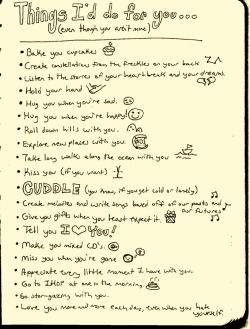 Things I'd do for you...
(even though you aren't mine)
• Bake you cupcakes
• Create constellations from the freckles on your back
• Listen to the stories of your heartbreak and your dreams
• Hold your hand
• Hug you when you're sad.
• Hug you when you're happy!
• Roll down hills with you.
• Explore new places with you.
• Take long walks along the ocean with you
• Kiss you (if you want)
• CUDDLE (you know, if you get cold or lonely)
• Create melodies and write songs based off of our pasts and our futures
• Give you gifts when you least expect it.
• Tell you I ♡ You!
• Make you mixed CD's.
• Miss you when you're gone
• Appreciate every little moment I have with you.
• Go to IHOP at one in the morning.
• Go star-gazing with you.
• Love you more and more each day, even when you hate yourself.